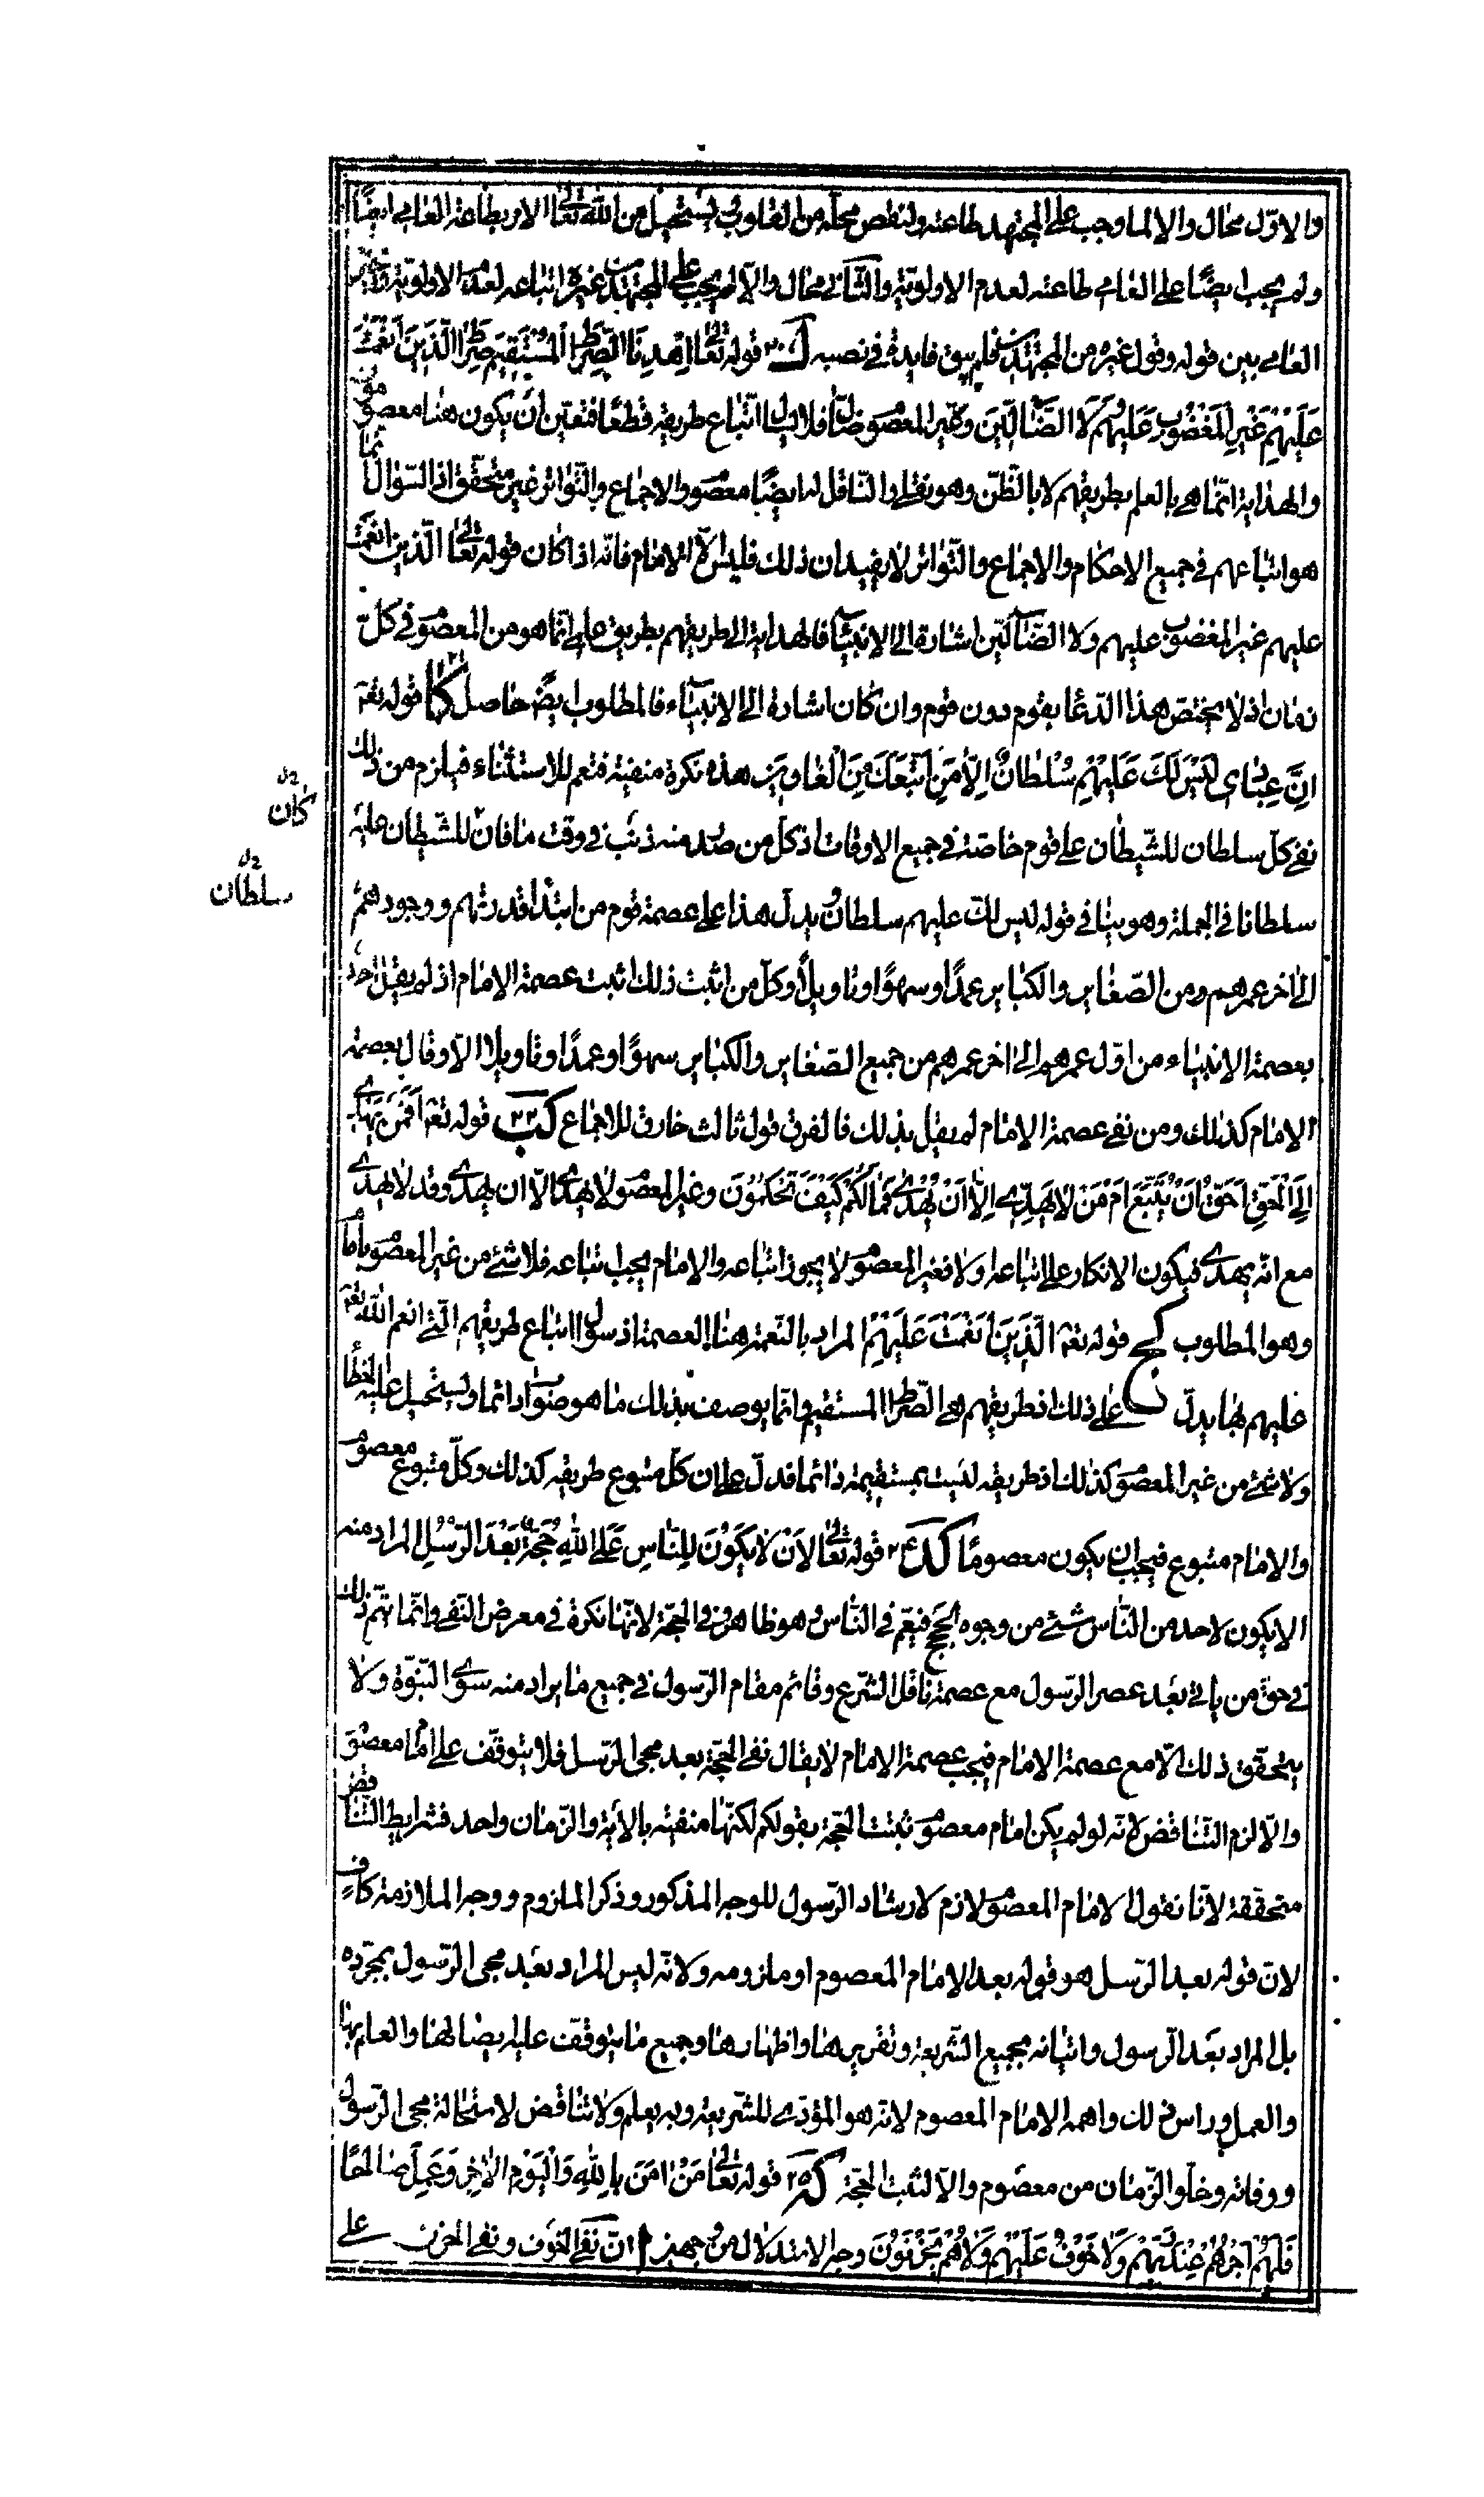 والاول محال والا لما وجب على المجتهد طاعته ولنقص محله من القلوب يستحيل من الله تعالى الامر بطاعة العامي ايضًا
ولم يجب ايضًا على العامي طاعته لعدم الاولوية والثاني محال والا لم يجب على المجتهدين غيره اتباعه لعدم الاولوية
العامي بين قوله وقول غيره من المجتهدين فلم يبق فايدة في نصبه ك ٢٠ قوله تعالى اِهْدِنَا الصِّرٰطَ الْمُسْتَقِيمَ صِرٰطَ الَّذِينَ اَنْعَمْتَ
عَلَيْهِمْ غَيْرِ الْمَغْضُوبِ عَلَيْهِمْ وَلَا الضَّالِّينَ وغير المعصوم ضال فلا يسال اتباع طريقه قطعًا فتعين ان يكون هنا معصوم
والهداية انما هي بالعلم بطريقهم لا بالظن وهو نقلي والناقل له ايضًا معصوم والاجماع والتواتر غير متحقق اذ السؤال انما
هو اتباعهم في جميع الاحكام والاجماع والتواتر لا يفيدان ذلك فليس الا الامام فانه اذا كان قوله تعالى الذين انعمت
عليهم غير المغضوب عليهم ولا الضالين اشارة الى الانبياء فالهداية الى طريقهم بطريق علمي انما هو من المعصوم في كل
زمان اذ لا يختص هذا الدعا بقوم دون قوم وان كان اشارة الى الانبياء فالمطلوب ايضًا حاصل كا ٢١ قوله تعه
اِنَّ عِبَادِي لَيْسَ لَكَ عَلَيْهِمْ سُلْطَانٌ اِلَّا مَنِ اتَّبَعَكَ مِنَ الْغَاوِينَ هذه نكرة منفية فتعم للاستثناء فيلزم من ذلك
نفي كل سلطان للشيطان على قوم خاصة في جميع الاوقات اذ كل من صدر منه ذنب في وقت ما فان للشيطان عليه
سلطانا في الجملة وهو ينافي قوله ليس لك عليهم سلطان ويدل هذا على عصمة قوم من ابتداء قدرتهم ووجودهم
الى اخر عمرهم ومن الصغاير والكباير عمدًا وسهوًا وتاويلًا وكل من اثبت ذلك اثبت عصمة الامام اذ لم يقل احد
بعصمة الانبياء من اول عمرهم الى اخر عمرهم من جميع الصغاير والكباير سهوًا وعمدًا وتاويلا الا وقال بعصمة
الامام كذلك ومن نفى عصمة الامام لم يقل بذلك فالفرق قول ثالث خارق للاجماع كب ٢٢ قوله تعه اَفَمَنْ يَهْدِي
اِلَى الْحَقِّ اَحَقُّ اَنْ يُتَّبَعَ اَمَّنْ لَا يَهِدِّي اِلَّا اَنْ يُهْدَى فَمَا لَكُمْ كَيْفَ تَحْكُمُونَ وغير المعصوم لا يهدي الا ان يهدى وقد لا يهدى
مع انه يهدى فيكون الانكار على اتباعه اولا فغير المعصوم لا يجوز اتباعه والامام يجب اتباعه فلا شئ من غير المعصوم بامام
وهو المطلوب كج قوله تعه الَّذِينَ اَنْعَمْتَ عَلَيْهِمْ المراد بالنعمة هنا العصمة اذ سؤال اتباع طريقهم التي انعم الله تعه
عليهم بها يدل على ذلك اذ طريقهم هي الصرٰط المستقيم وانما يوصف بذلك ما هو صواب دائما ويستحيل عليه الخطأ
ولا شئ من غير المعصوم كذلك اذ طريقه ليست بمستقيمة دائما فدل على ان كل متبوع طريقه كذلك وكل متبوع معصوم
والامام متبوع فيجب ان يكون معصومًا كد ٢٤ قوله تعالى لِاَنْ لَا يَكُونَ لِلنَّاسِ عَلَى اللّٰهِ حُجَّةٌ بَعْدَ الرُّسُلِ المراد منه
الا يكون لاحد من الناس شئ من وجوه الحجج فيعم في الناس وهو ظاهر وفي الحجة لانها نكرة في معرض النفي وانما يتم ذلك
في حق من ياتي بعد عصر الرسول مع عصمة ناقل الشرع وقائم مقام الرسول في جميع ما يراد منه سوى النبوة ولا
يتحقق ذلك الا مع عصمة الامام فيجب عصمة الامام لا يقال نفى الحجة بعد مجئ الرسل فلا يتوقف على امام معصوم
والا لزم التناقض لانه لو لم يكن امام معصوم ثبتت الحجة بقولكم لكنها منفية بالاية والزمان واحد فشرايط التناقض
متحققة لانا نقول الامام المعصوم لازم لارشاد الرسول للوجه المذكور وذكر الملزوم ووجه الملازمة كاف
لان قوله بعد الرسل هو قوله بعد الامام المعصوم او ملزومه ولانه ليس المراد بعد مجئ الرسول بمجرده
بل المراد بعد الرسول واتيانه بجميع الشريعة وتقريرها واظهارها وجميع ما يتوقف عليه ايصالها والعلم بها
والعمل وراس ذلك واهمه الامام المعصوم لانه هو المؤدي للشريعة وبه يعلم ولا تناقض لاستحالة مجئ الرسول
ووفاته وخلو الزمان من معصوم والا لثبت الحجة كه ٢٥ قوله تعالى مَنْ اٰمَنَ بِاللّٰهِ وَالْيَوْمِ الْاٰخِرِ وَعَمِلَ صَالِحًا
فَلَهُمْ اَجْرُهُمْ عِنْدَ رَبِّهِمْ وَلَا خَوْفٌ عَلَيْهِمْ وَلَا هُمْ يَحْزَنُونَ وجه الاستدلال من وجهين ا ان نفي الخوف ونفي الحزن على
كان
سلطان